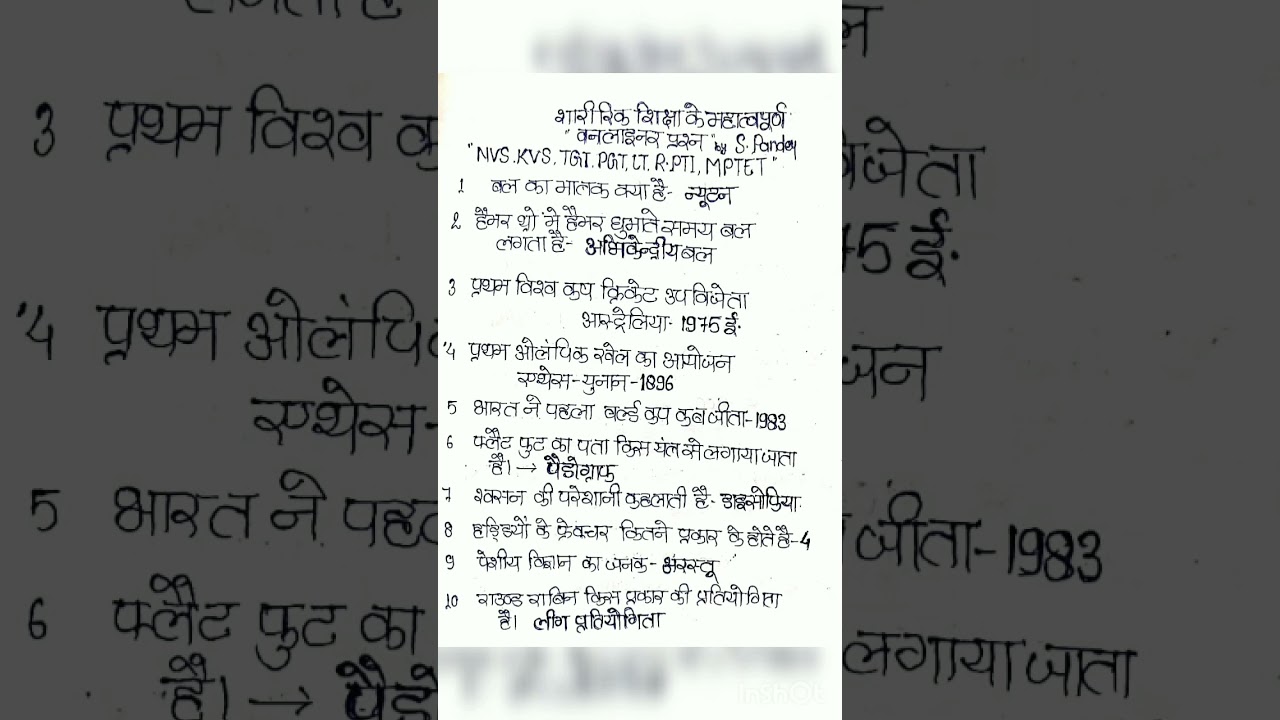 शारीरिक शिक्षा के महात्वपूर्ण
"वनलाइनर प्रश्न" by S. Pandey
"NVS. KVS, TGT. PGT, LT. R.PTI, MPTET"
1 बल का मात्रक क्या है- न्यूटन
2 हैमर थ्रो में हैमर घुमाते समय बल
लगता है- अभिकेन्द्रीय बल
3 प्रथम विश्व कप क्रिकेट उपविजेता
आस्ट्रेलिया- 1975 ई.
'4 प्रथम ओलंपिक खेल का आयोजन
एथेंस-युनान-1896
5 भारत ने पहला वर्ल्ड कप कब जीता-1983
6 फ्लैट फुट का पता किस यंत्र से लगाया जाता
है। → पैडोग्राफ
7 श्वसन की परेशानी कहलाती है- डाइसोप्निया.
8 हड्डियों के फ्रेक्चर कितने प्रकार के होते है-4
9 पेशीय विज्ञान का जनक- अरस्तू
10 राउण्ड राबिन किस प्रकार की प्रतियोगिता
है। लीग प्रतियोगिता
InShOt